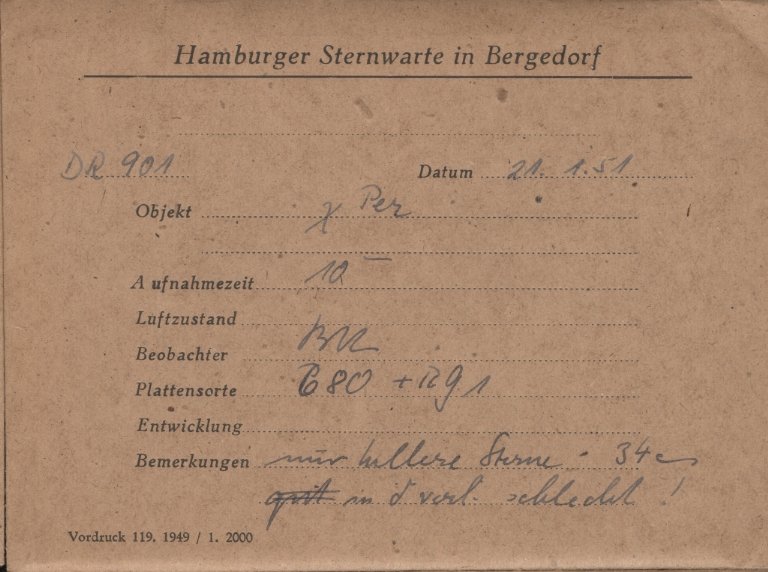 Hamburger Sternwarte in Bergedorf
DR 901 Datum 21. 1. 51
Objekt χ Per
Aufnahmezeit 10
Luftzustand
Beobachter
Plattensorte 680 + RG 1
Entwicklung
Bemerkungen nur hellere Sterne - 34
gut in δ verl. schlecht!
Vordruck 119. 1949 / 1. 2000